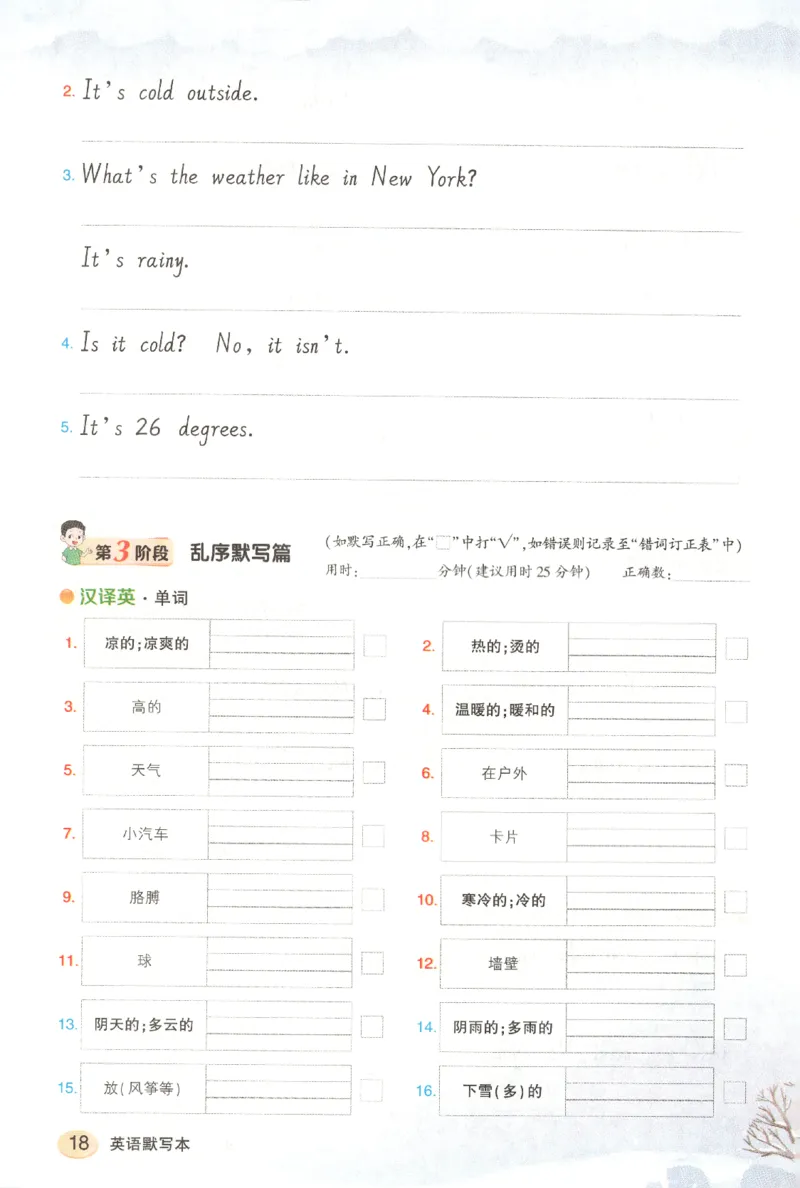 2. It's cold outside.
3. What's the weather like in New York?
It's rainy.
4. Is it cold? No, it isn't.
5. It's 26 degrees.
第3阶段 乱序默写篇 (如默写正确,在“□”中打“✓”,如错误则记录至“错词订正表”中)
用时:________分钟(建议用时25分钟) 正确数:________
汉译英·单词
1. 凉的;凉爽的 2. 热的;烫的
3. 高的 4. 温暖的;暖和的
5. 天气 6. 在户外
7. 小汽车 8. 卡片
9. 胳膊 10. 寒冷的;冷的
11. 球 12. 墙壁
13. 阴天的;多云的 14. 阴雨的;多雨的
15. 放(风筝等) 16. 下雪(多)的
18 英语默写本